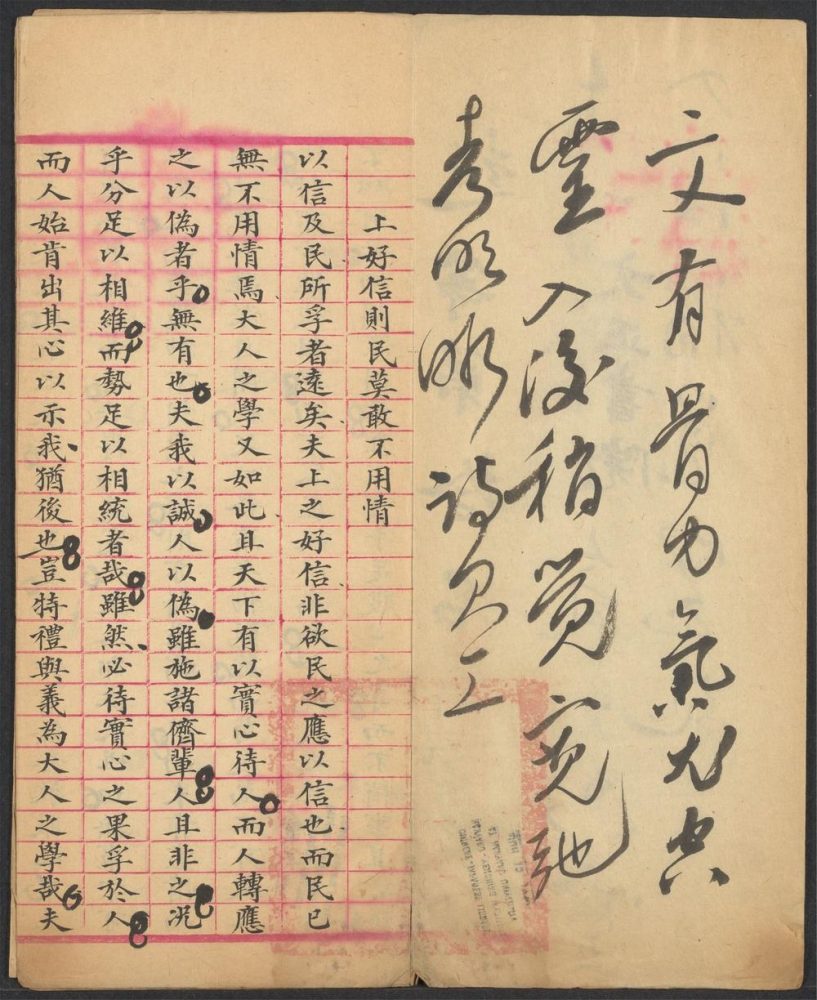 文有骨力氣尤空
靈入後稍覺寬弛
明晰詩欠工
上好信則民莫敢不用情
以信及民所孚者遠矣夫上之好信非欲民之應以信也而民已
無不用情焉大人之學又如此且天下有以實心待人而人轉應
之以偽者乎無有也夫我以誠人以偽雖施諸儕輩人且非之況
乎分足以相維而勢足以相統者哉雖然必待實心之果孚於人
而人始肯出其心以示我猶後也豈特禮與義為大人之學哉夫